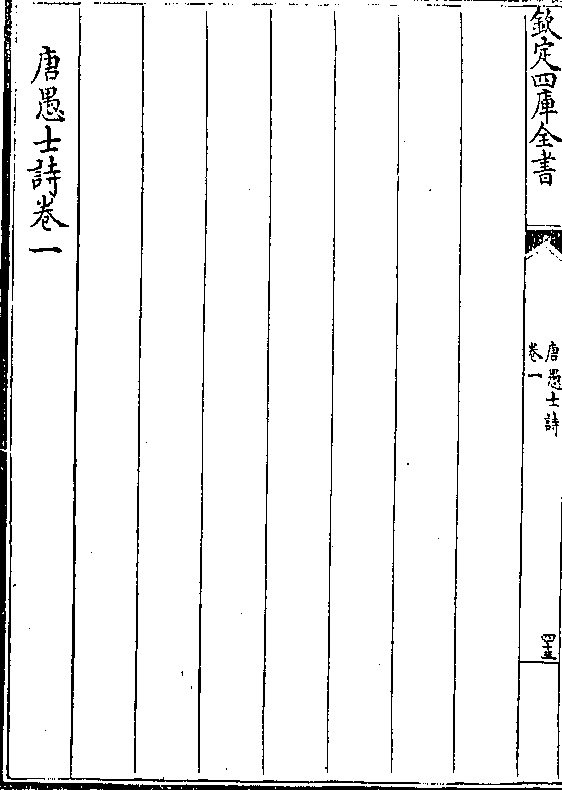 欽定四庫全書
唐愚士詩
卷一
唐愚士詩卷一